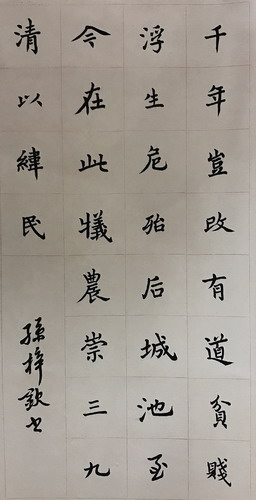 千年豈改有道貧賤
浮生危殆后城池至
今在此犧農崇三九
清以緯民
孫梓欽书